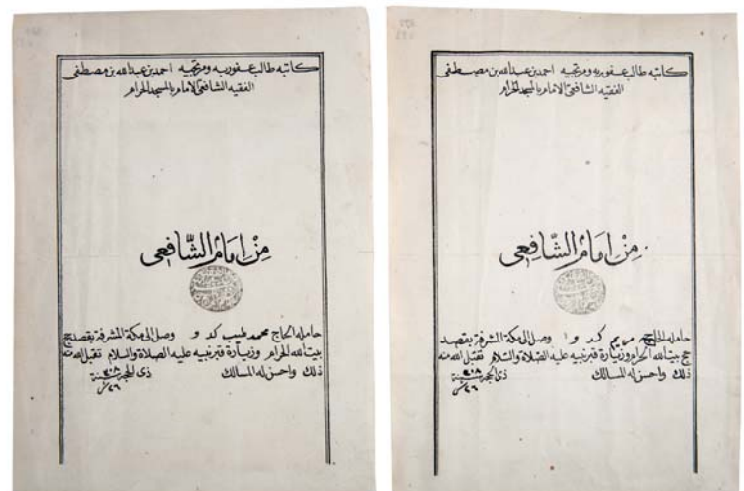 كاتبه طالب عفو ربه ومرتجيه احمد بن عبدالله بن مصطفى
الفقيه الشافعي الامام بالمسجد الحرام
مِنْ اِمَامُ الشَّافِعِى
حامله الحاج محمد طيب كد و وصل الى مكة المشرفة بقصد حج
بيت الله الحرام وزيارة قبر نبيه عليه الصلاة والسلام تقبل الله منه
ذلك واحسن له المسالك ذى الحجة سنة
كاتبه طالب عفو ربه ومرتجيه احمد بن عبدالله بن مصطفى
الفقيه الشافعي الامام بالمسجد الحرام
مِنْ اِمَامُ الشَّافِعِى
حامله الحاجه مريم كد و ا وصل الى مكة المشرفة بقصد
حج بيت الله الحرام وزيارة قبر نبيه عليه الصلاة والسلام تقبل الله منه
ذلك واحسن له المسالك ذى الحجة سنة